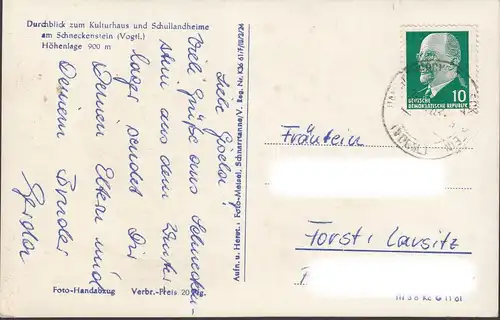 Durchblick zum Kulturhaus und Schullandheime
am Schneckenstein (Vogtl.)
Höhenlage 900 m
Liebe Gisela!
Viel Grüße aus Schnecken-
stein aus dem Winter
lager sendet Dir
Deinen Eltern und
Deinem Bruder
Gerda
Foto-Handabzug Verbr.-Preis 20 Pfg.
Aufn. u. Herst.: Foto-Meisel, Schnarrtanne/V. Reg. Nr. K36 61/7/II/2/34
10
DEUTSCHE
DEMOKRATISCHE REPUBLIK
Fräulein
Forst, Lausitz